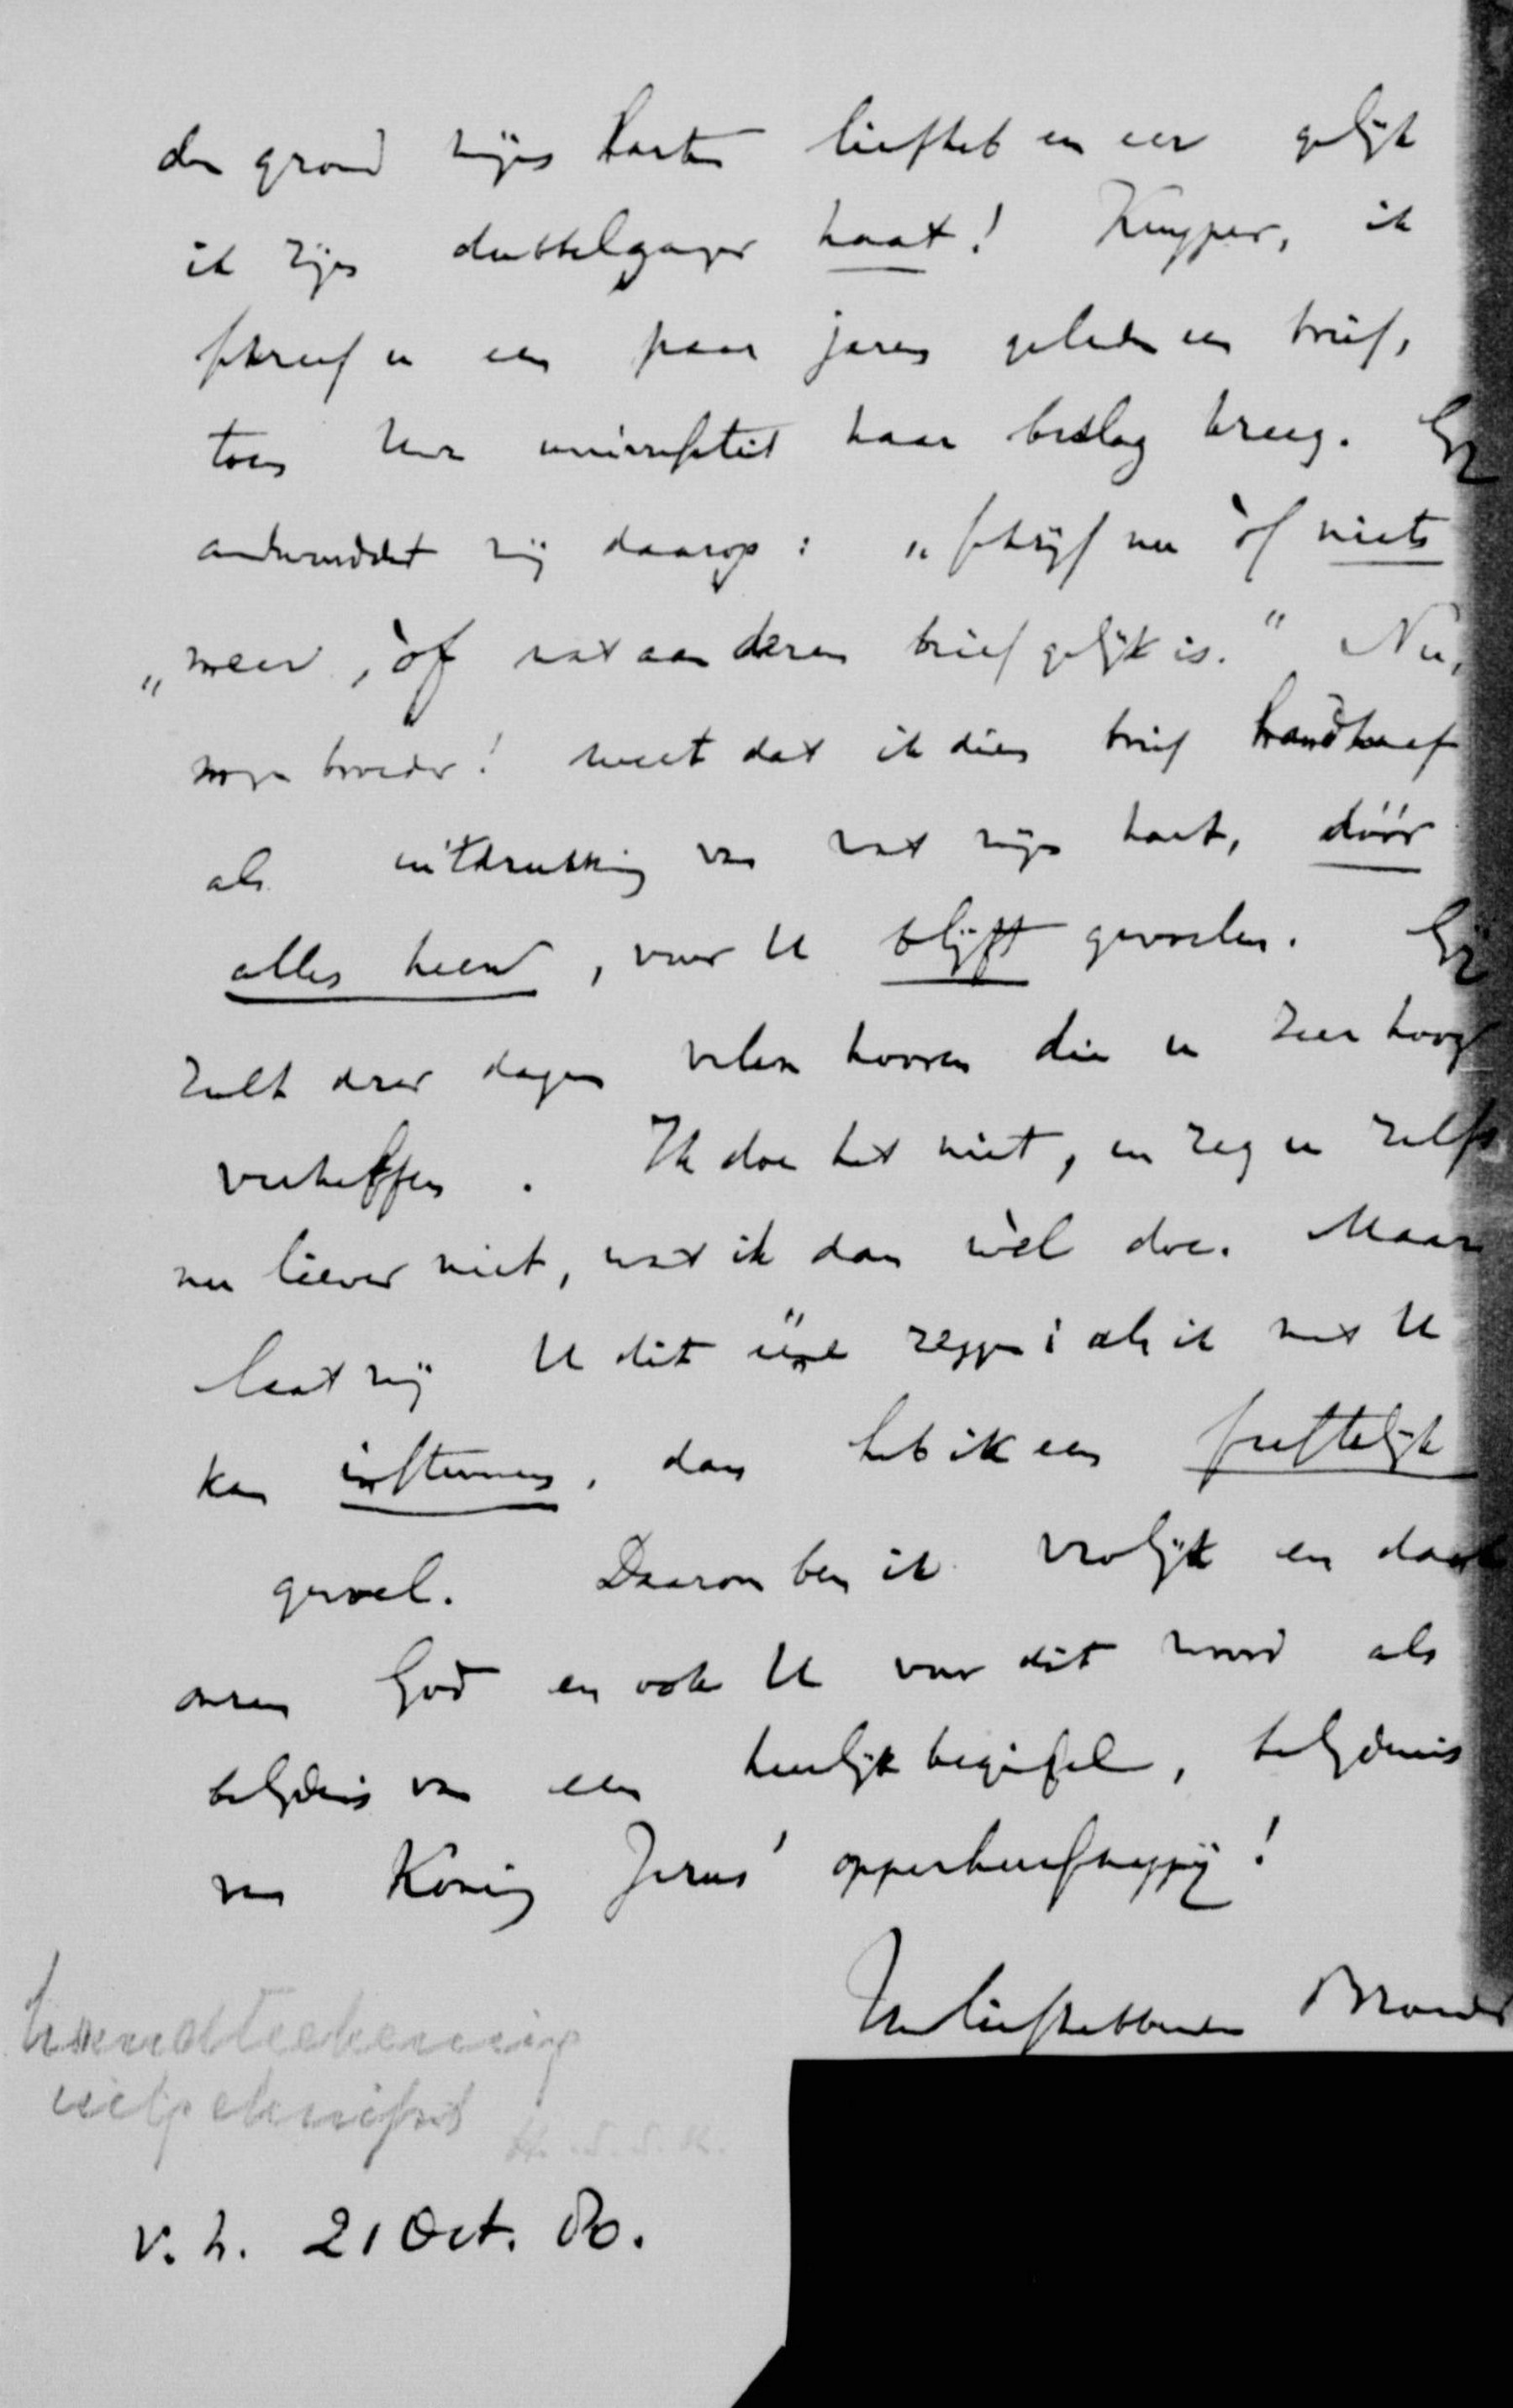 den grond mijns harten liefheb en eer gelijk
ik zijn dubbelganger haat! Kuyper, ik
schreef u een paar jaren geleden een brief,
toen Uwe universiteit haar beslag kreeg. Gij
antwoorddet mij daarop: „schrijf nu òf niets
„meer, òf wat aan dezen brief gelijk is." Nu,
mijn broeder! weet dat ik dien brief handhaaf
als uitdrukking van wat mijn hart, dóór
alles heen, voor U blijft gevoelen. Gij
zult dezer dagen velen hooren die u zeer hoog
verheffen. Ik doe het niet, en zeg u zelfs
nu liever niet, wat ik dan wèl doe. Maar
laat mij U dit ééne zeggen: als ik met U
kan instemmen, dan heb ik een feestelijk
gevoel. Daarom ben ik vrolijk en dank
onzen God en ook U voor dit woord als
belijdenis van een heerlijk beginsel, belijdenis
van Koning Jezus' opperheerschappij!
Uw liefhebbende Broeder
handteekening
uitgeknipt
v. h. 21 Oct. 80.